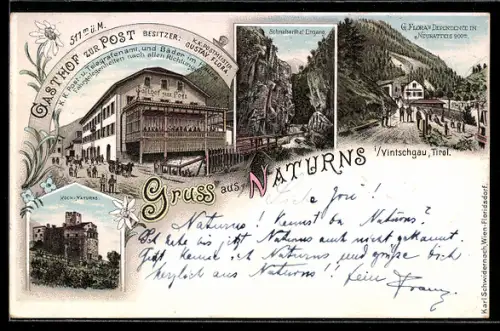 511 m ü M.
GASTHOF ZUR POST
BESITZER:
K.K. POSTMEISTER
GUSTAV FLORA
K.K. Post- u. Telegrafenamt, und Bäder im Hause
nach allen Richtungen
Gasthof zur Post
Schnalserthal Eingang
G. FLORA'S DEPENDENCE IN
1/Vintschgau, Tirol.
Gruss aus NATURNS
Liebe José!
Naturns! Kennst du Naturns?
Ich habe bis jetzt Naturns auch nicht gekannt
Jetzt kenne ich Naturns und grüße Dich
herzlich aus Naturns!! Dein
Franz
Karl Schwidernoch, Wien-Floridsdorf.